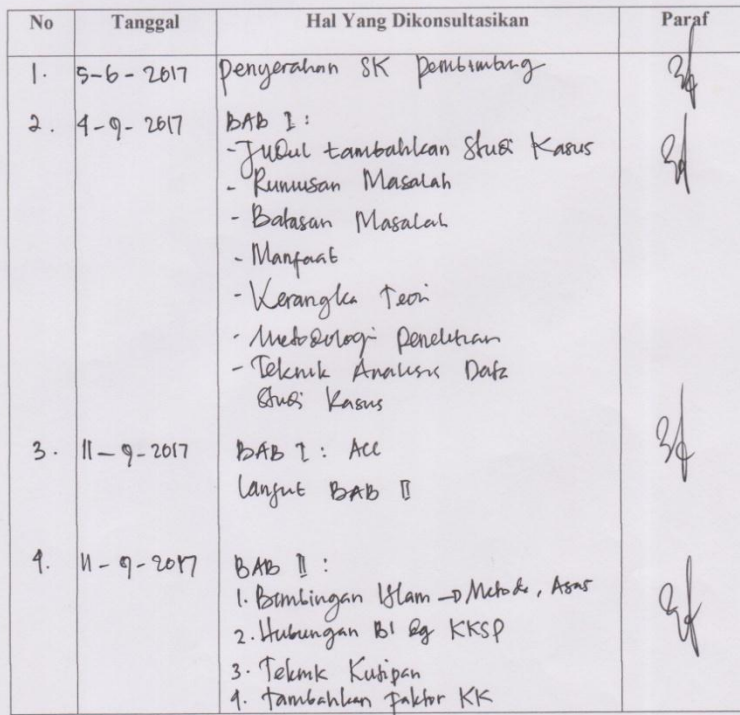 No Tanggal Hal Yang Dikonsultasikan Paraf
1. 5-6-2017 Penyerahan SK Pembimbing
2. 4-9-2017 BAB I :
- Judul tambahkan Studi Kasus
- Rumusan Masalah
- Batasan Masalah
- Manfaat
- Kerangka Teori
- Metodologi Penelitian
- Teknik Analisis Data
Studi Kasus
3. 11-9-2017 BAB I : Acc
Lanjut BAB II
4. 11-9-2017 BAB II :
1. Bimbingan Islam → Metode, Asas
2. Hubungan BI dg KKSP
3. Teknik Kutipan
4. Tambahkan Faktor KK